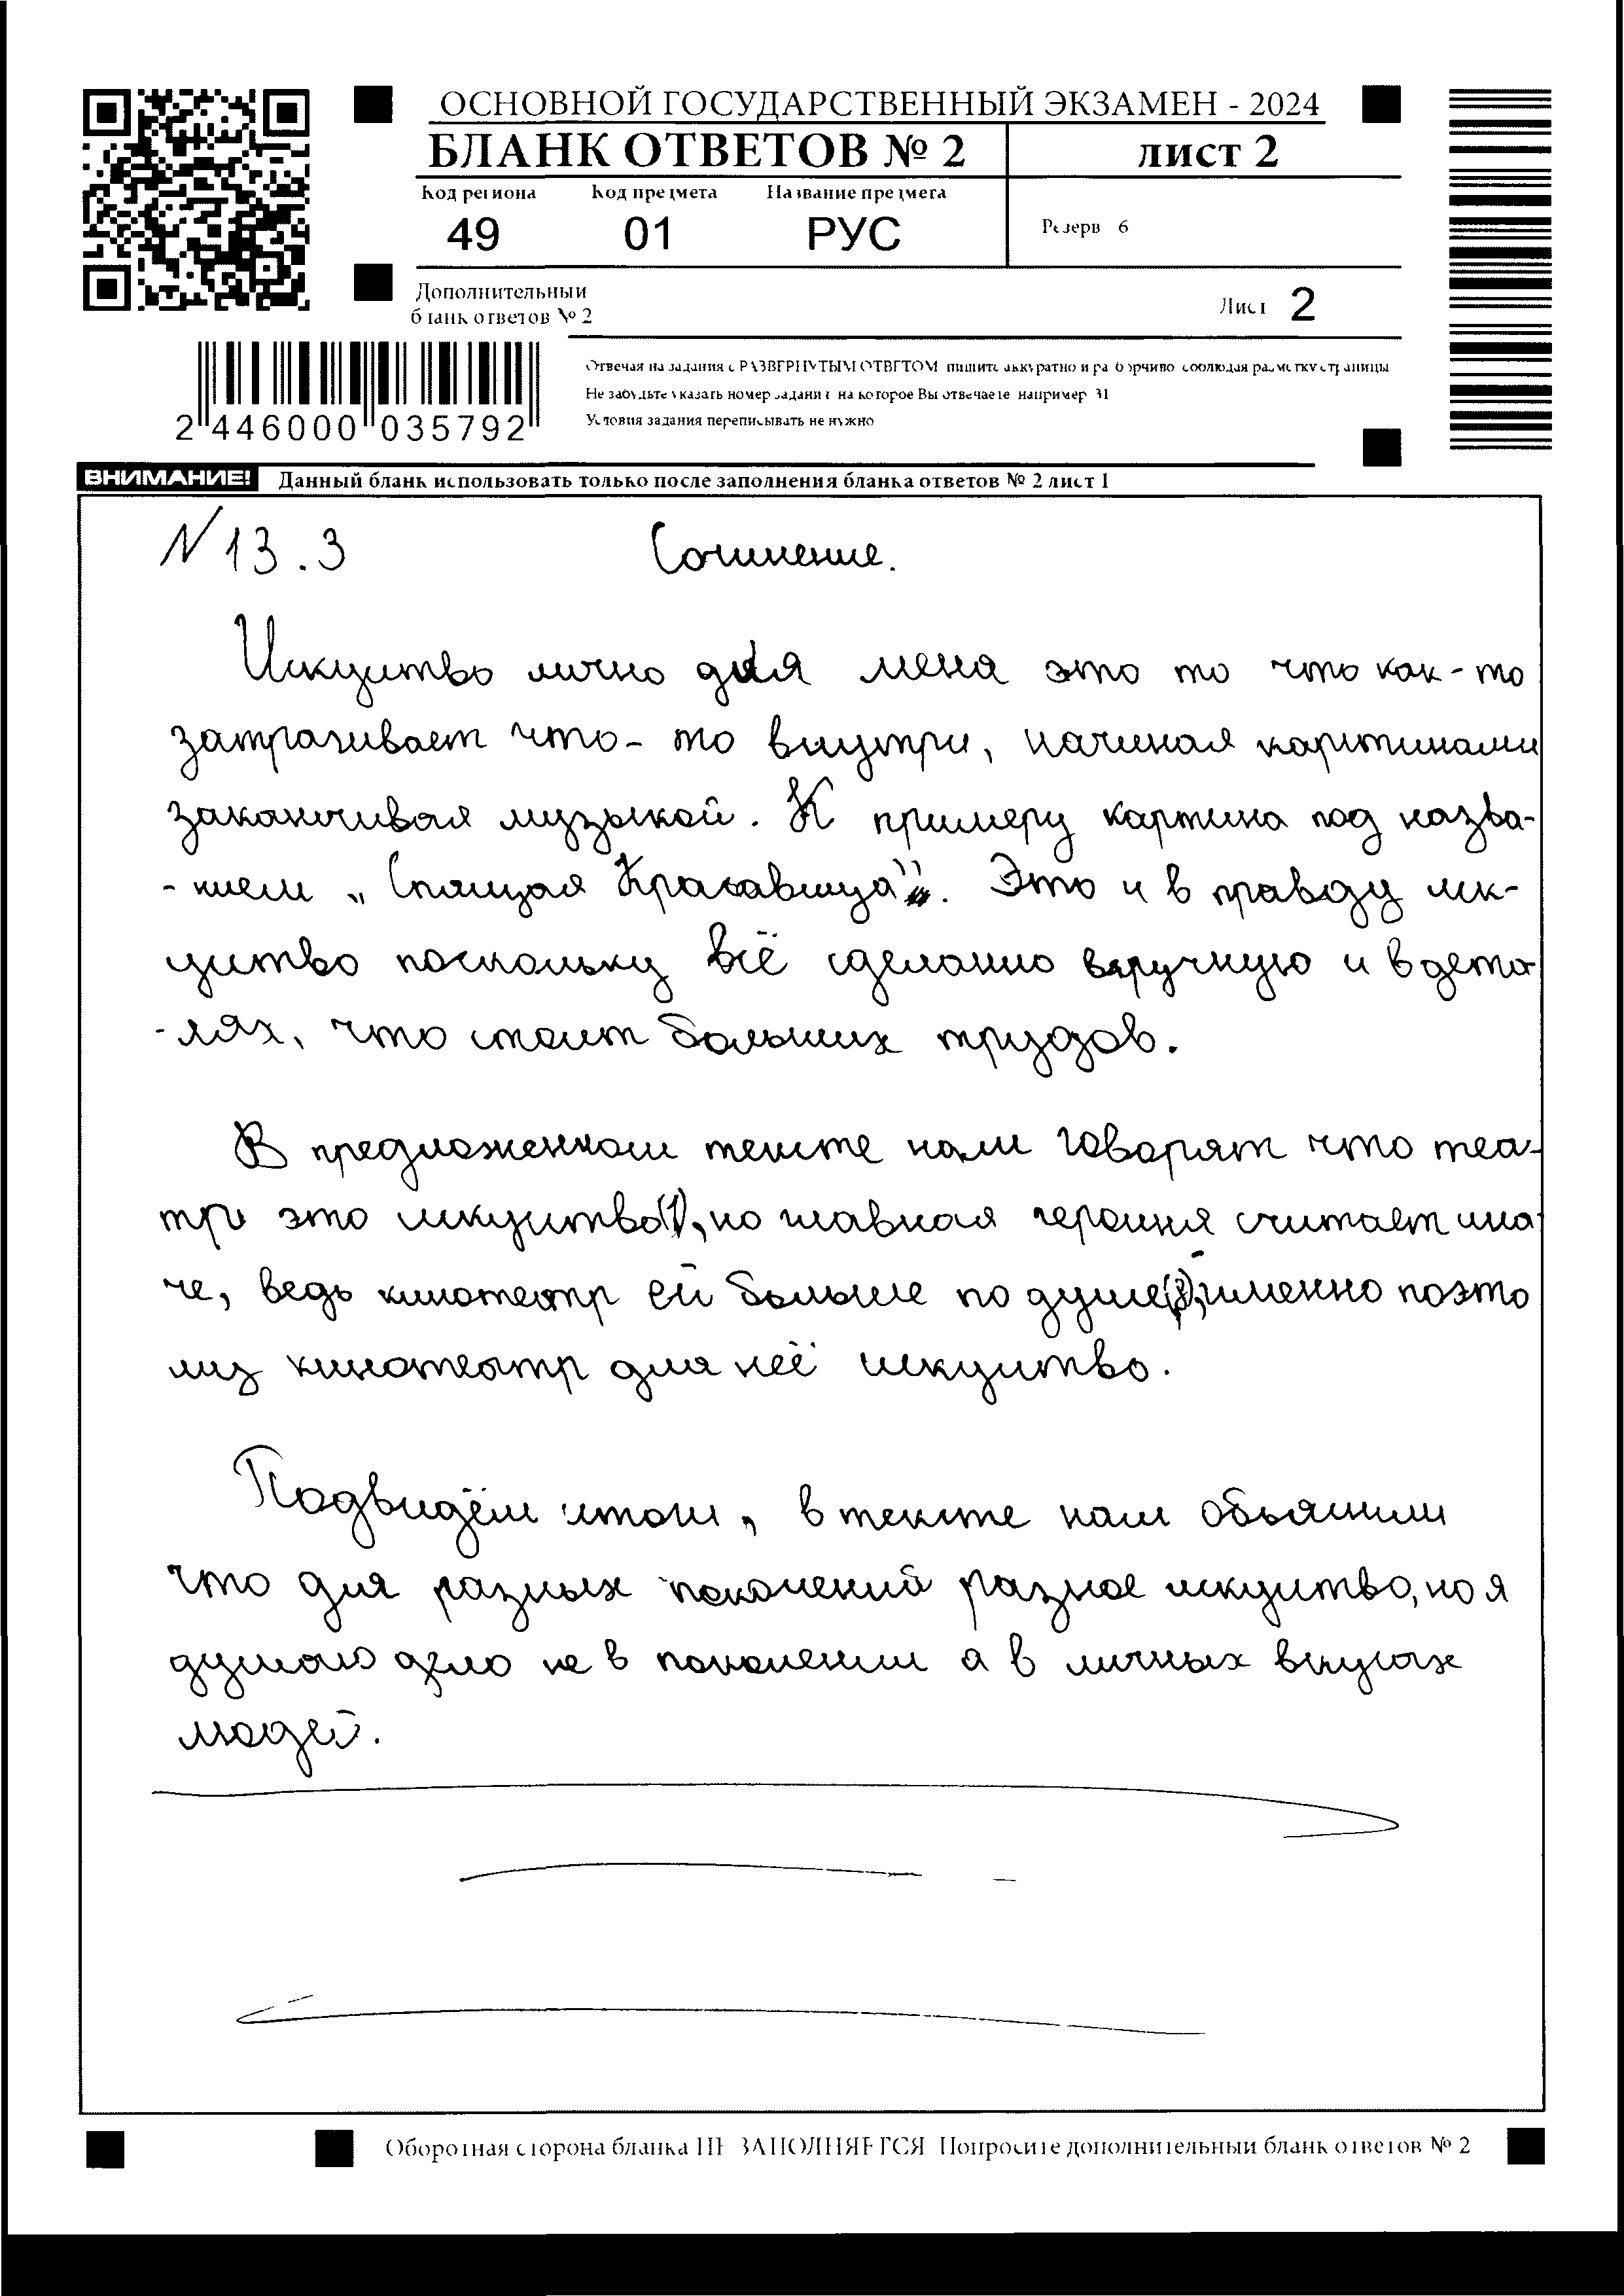 ОСНОВНОЙ ГОСУДАРСТВЕННЫЙ ЭКЗАМЕН - 2024
БЛАНК ОТВЕТОВ № 2 лист 2
Код региона Код предмета Название предмета
49 01 РУС
Резерв 6
Дополнительный
бланк ответов № 2
Лист 2
Отвечая на задания с РАЗВЕРНУТЫМ ОТВЕТОМ пишите аккуратно и разборчиво соблюдая разметку страницы
Не забудьте указать номер задания на которое Вы отвечаете например 31
Условия задания переписывать не нужно
2 446000 035792
ВНИМАНИЕ! Данный бланк использовать только после заполнения бланка ответов № 2 лист 1
N 13.3 Сочинение.
Искуство лично для меня это то что как-то
затрагивает что-то внутри, начиная картинами
заканчивая музыкой. К примеру картина под назва-
-нием „Спящая Красавица". Это и в правду иск-
уство поскольку всё сделанно вручную и в дета
-лях, что стоит больших трудов.
В предложенном тексте нам говорят что теа-
тр это искуство(1), но главная героиня считает ина
че, ведь кинотеатр ей больше по душе именно поэто
му кинотеатр для неё искуство.
Подвидём итог, в тексте нам обьяснили
что для разных поколений разное искуство, но я
думаю дело не в поколении а в личных вкусах
людей.
Оборотная сторона бланка НЕ ЗАПОЛНЯЕТСЯ Попросите дополнительный бланк ответов № 2